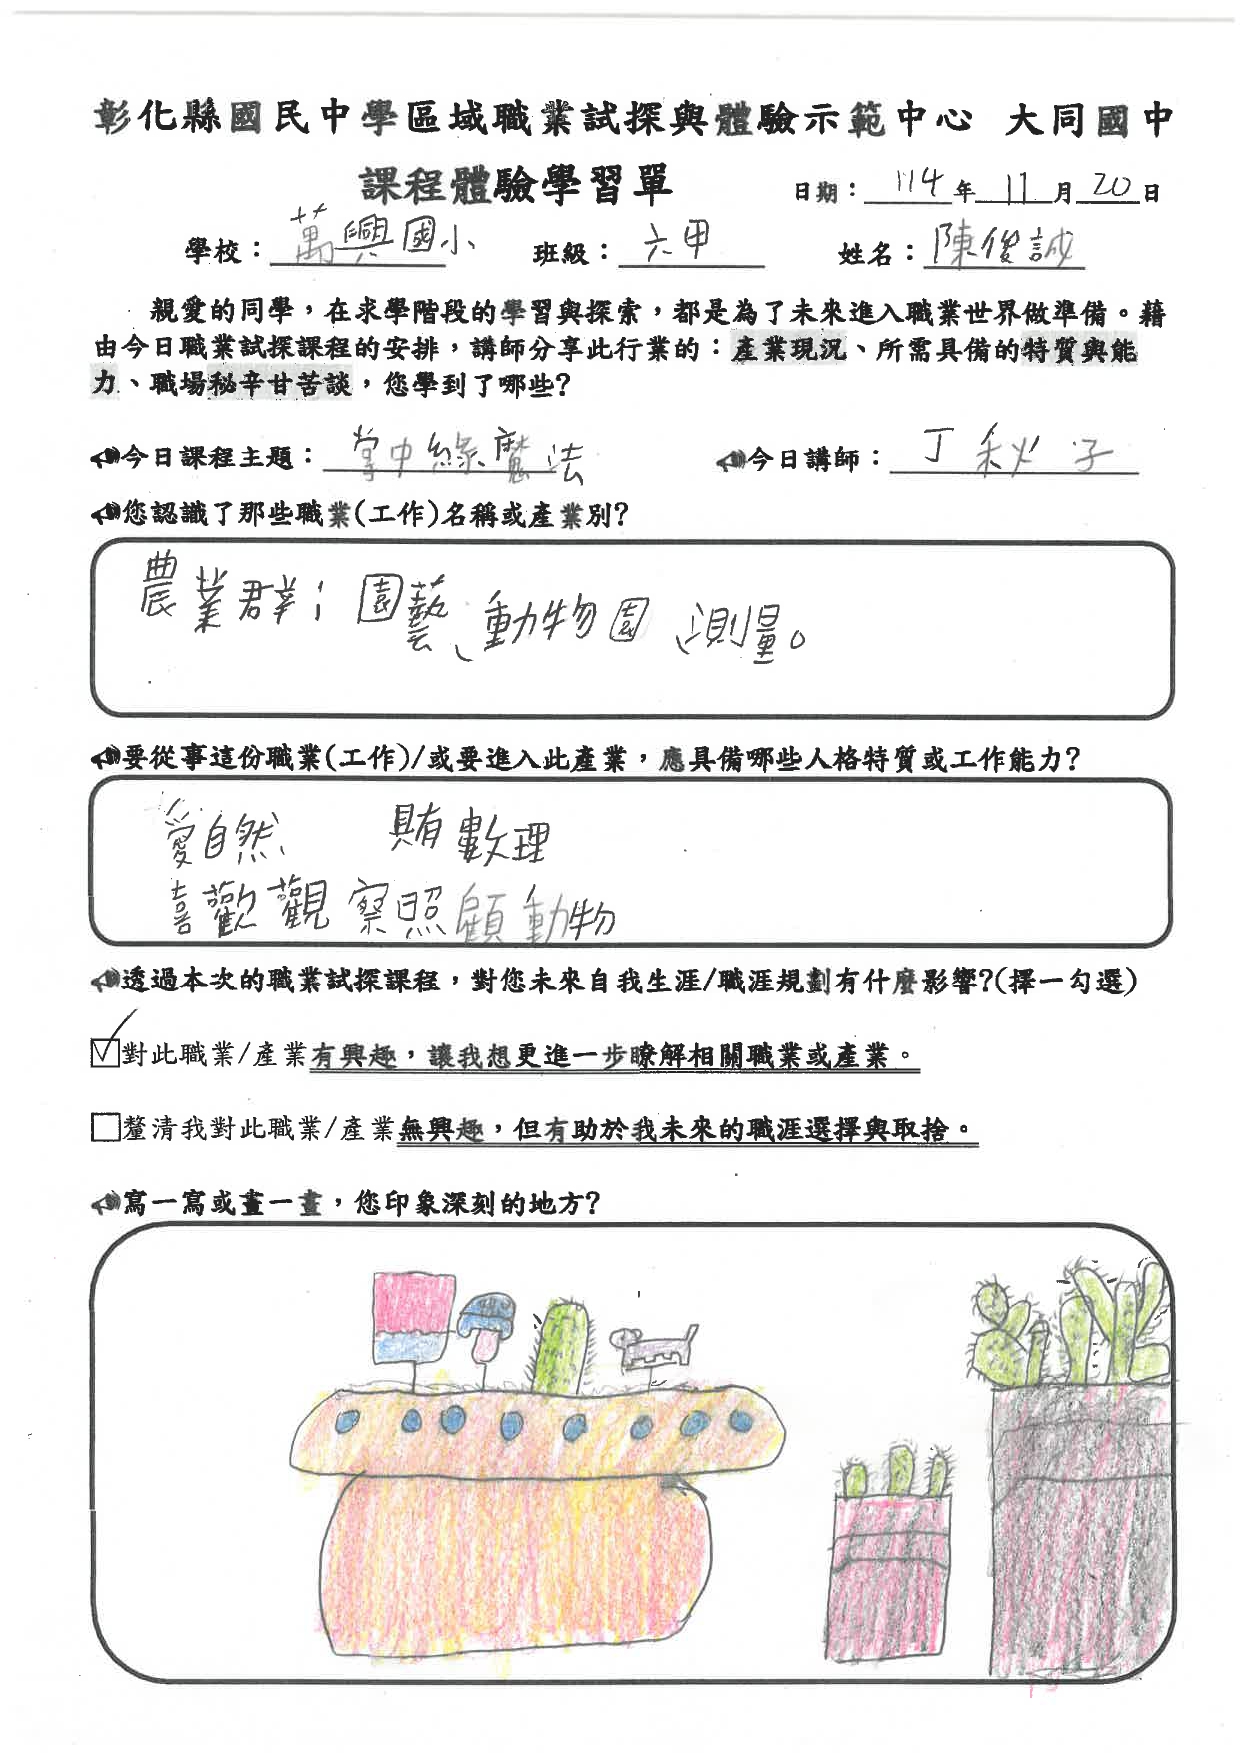 彰化縣國民中學區域職業試探與體驗示範中心 大同國中
課程體驗學習單 日期：114年11月20日
學校：萬興國小 班級：六甲 姓名：陳俊誠
親愛的同學，在求學階段的學習與探索，都是為了未來進入職業世界做準備。藉
由今日職業試探課程的安排，講師分享此行業的：產業現況、所需具備的特質與能
力、職場秘辛甘苦談，您學到了哪些?
今日課程主題：掌中綠魔法 今日講師：丁秋子
您認識了那些職業(工作)名稱或產業別?
農業群；園藝、動物園、測量。
要從事這份職業(工作)/或要進入此產業，應具備哪些人格特質或工作能力?
愛自然 數理
喜歡觀察照顧動物
透過本次的職業試探課程，對您未來自我生涯/職涯規劃有什麼影響?(擇一勾選)
☑對此職業/產業有興趣，讓我想更進一步瞭解相關職業或產業。
□釐清我對此職業/產業無興趣，但有助於我未來的職涯選擇與取捨。
寫一寫或畫一畫，您印象深刻的地方?